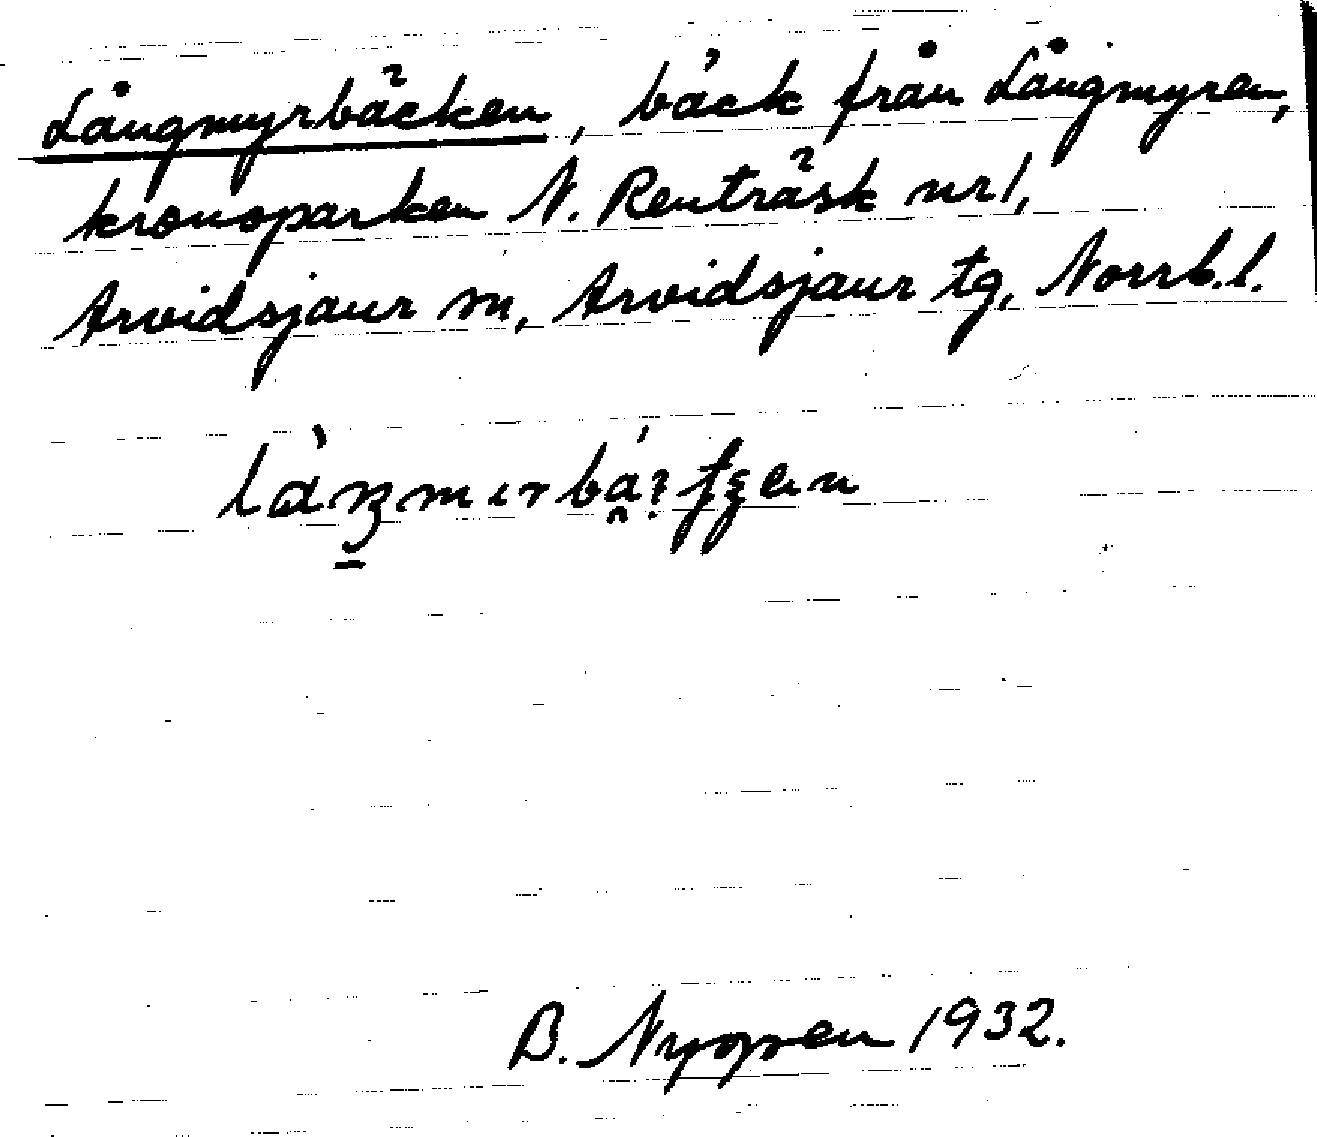 Långmyrbäcken, bäck från Långmyren,
kronoparken N. Renträsk nr 1,
Arvidsjaur sn, Arvidsjaur tg, Norrb. l.
B. Nygren 1932.